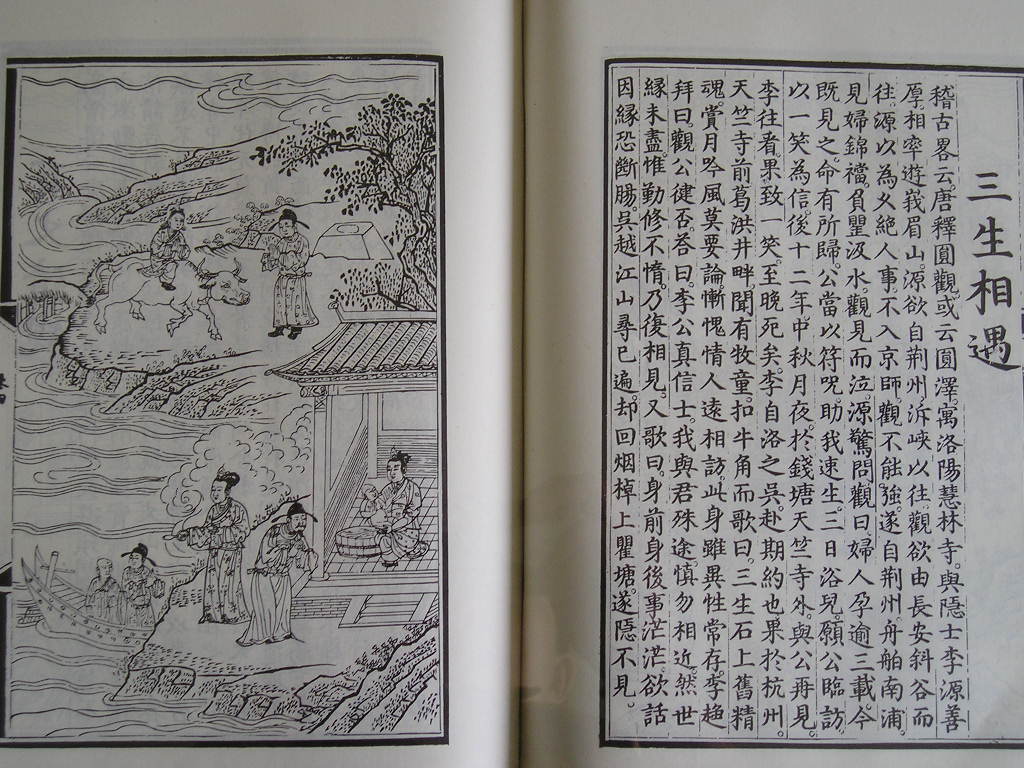 三生相遇
稽古畧云。唐釋圓觀。或云圓澤。寓洛陽慧林寺。與隱士李源善
厚。相率遊峩眉山。源欲自荆州泝峽以往。觀欲由長安斜谷而
往。源以為久絕人事。不入京師。觀不能強。遂自荆州。舟舶南浦。
見婦錦襠負甖汲水。觀見而泣。源驚問。觀曰。婦人孕逾三載。今
既見之。命有所歸。公當以符呪助我速生。三日浴兒。願公臨訪。
以一笑為信。後十二年中秋月夜。於錢塘天竺寺外。與公再見。
李往看。果致一笑。至晚死矣。李自洛之吳。赴期約也。果於杭州
天竺寺前葛洪井畔。聞有牧童。扣牛角而歌曰。三生石上舊精
魂。賞月吟風莫要論。慚愧情人遠相訪。此身雖異性常存。李趨
拜曰。觀公徤否。荅曰。李公真信士。我與君殊途。慎勿相近。然世
緣未盡。惟勤修不惰。乃復相見。又歌曰。身前身後事茫茫。欲話
因緣恐斷腸。吳越江山尋已遍。却回烟棹上瞿塘。遂隱不見。